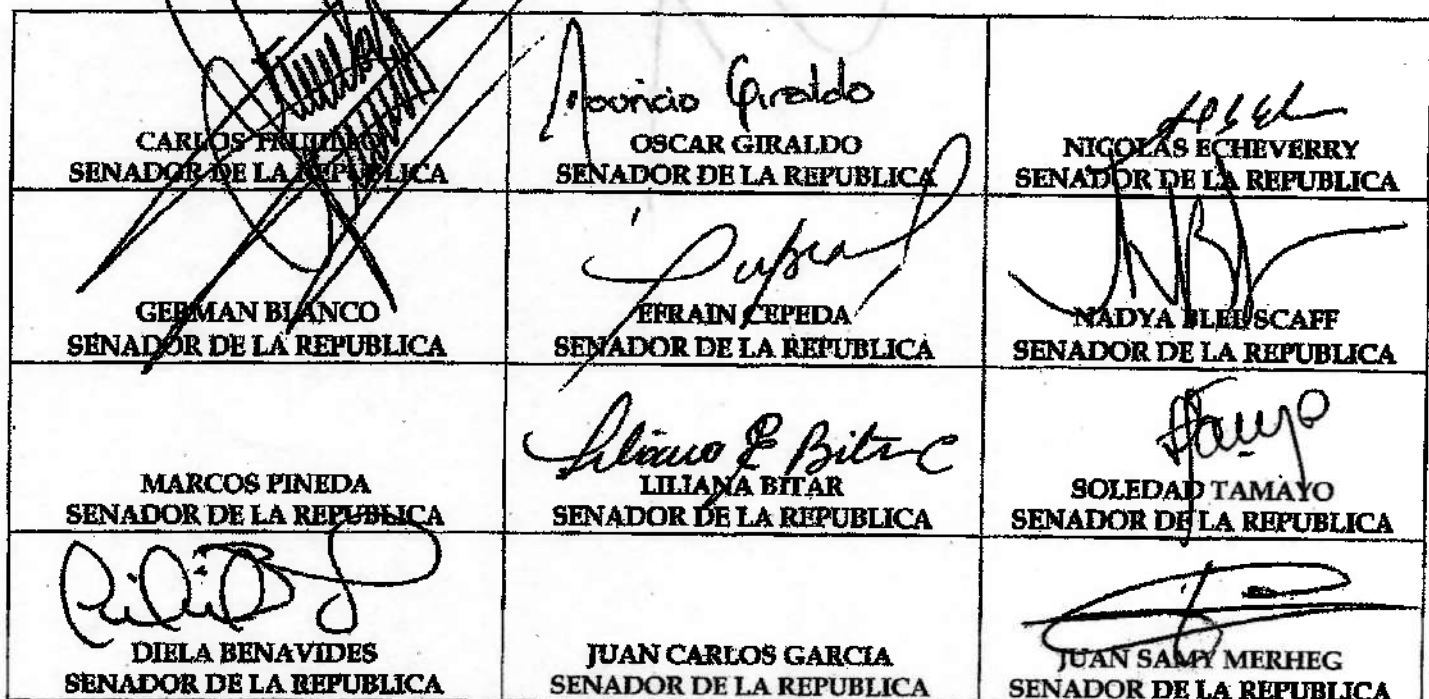 Mauricio Giraldo
CARLOS TRUJILLO
SENADOR DE LA REPUBLICA
OSCAR GIRALDO
SENADOR DE LA REPUBLICA
NICOLAS ECHEVERRY
SENADOR DE LA REPUBLICA
GERMAN BLANCO
SENADOR DE LA REPUBLICA
EFRAIN CEPEDA
SENADOR DE LA REPUBLICA
NADYA BLEL SCAFF
SENADOR DE LA REPUBLICA
MARCOS PINEDA
SENADOR DE LA REPUBLICA
Liliana E Bitar C
LILIANA BITAR
SENADOR DE LA REPUBLICA
SOLEDAD TAMAYO
SENADOR DE LA REPUBLICA
DIELA BENAVIDES
SENADOR DE LA REPUBLICA
JUAN CARLOS GARCIA
SENADOR DE LA REPUBLICA
JUAN SAMY MERHEG
SENADOR DE LA REPUBLICA